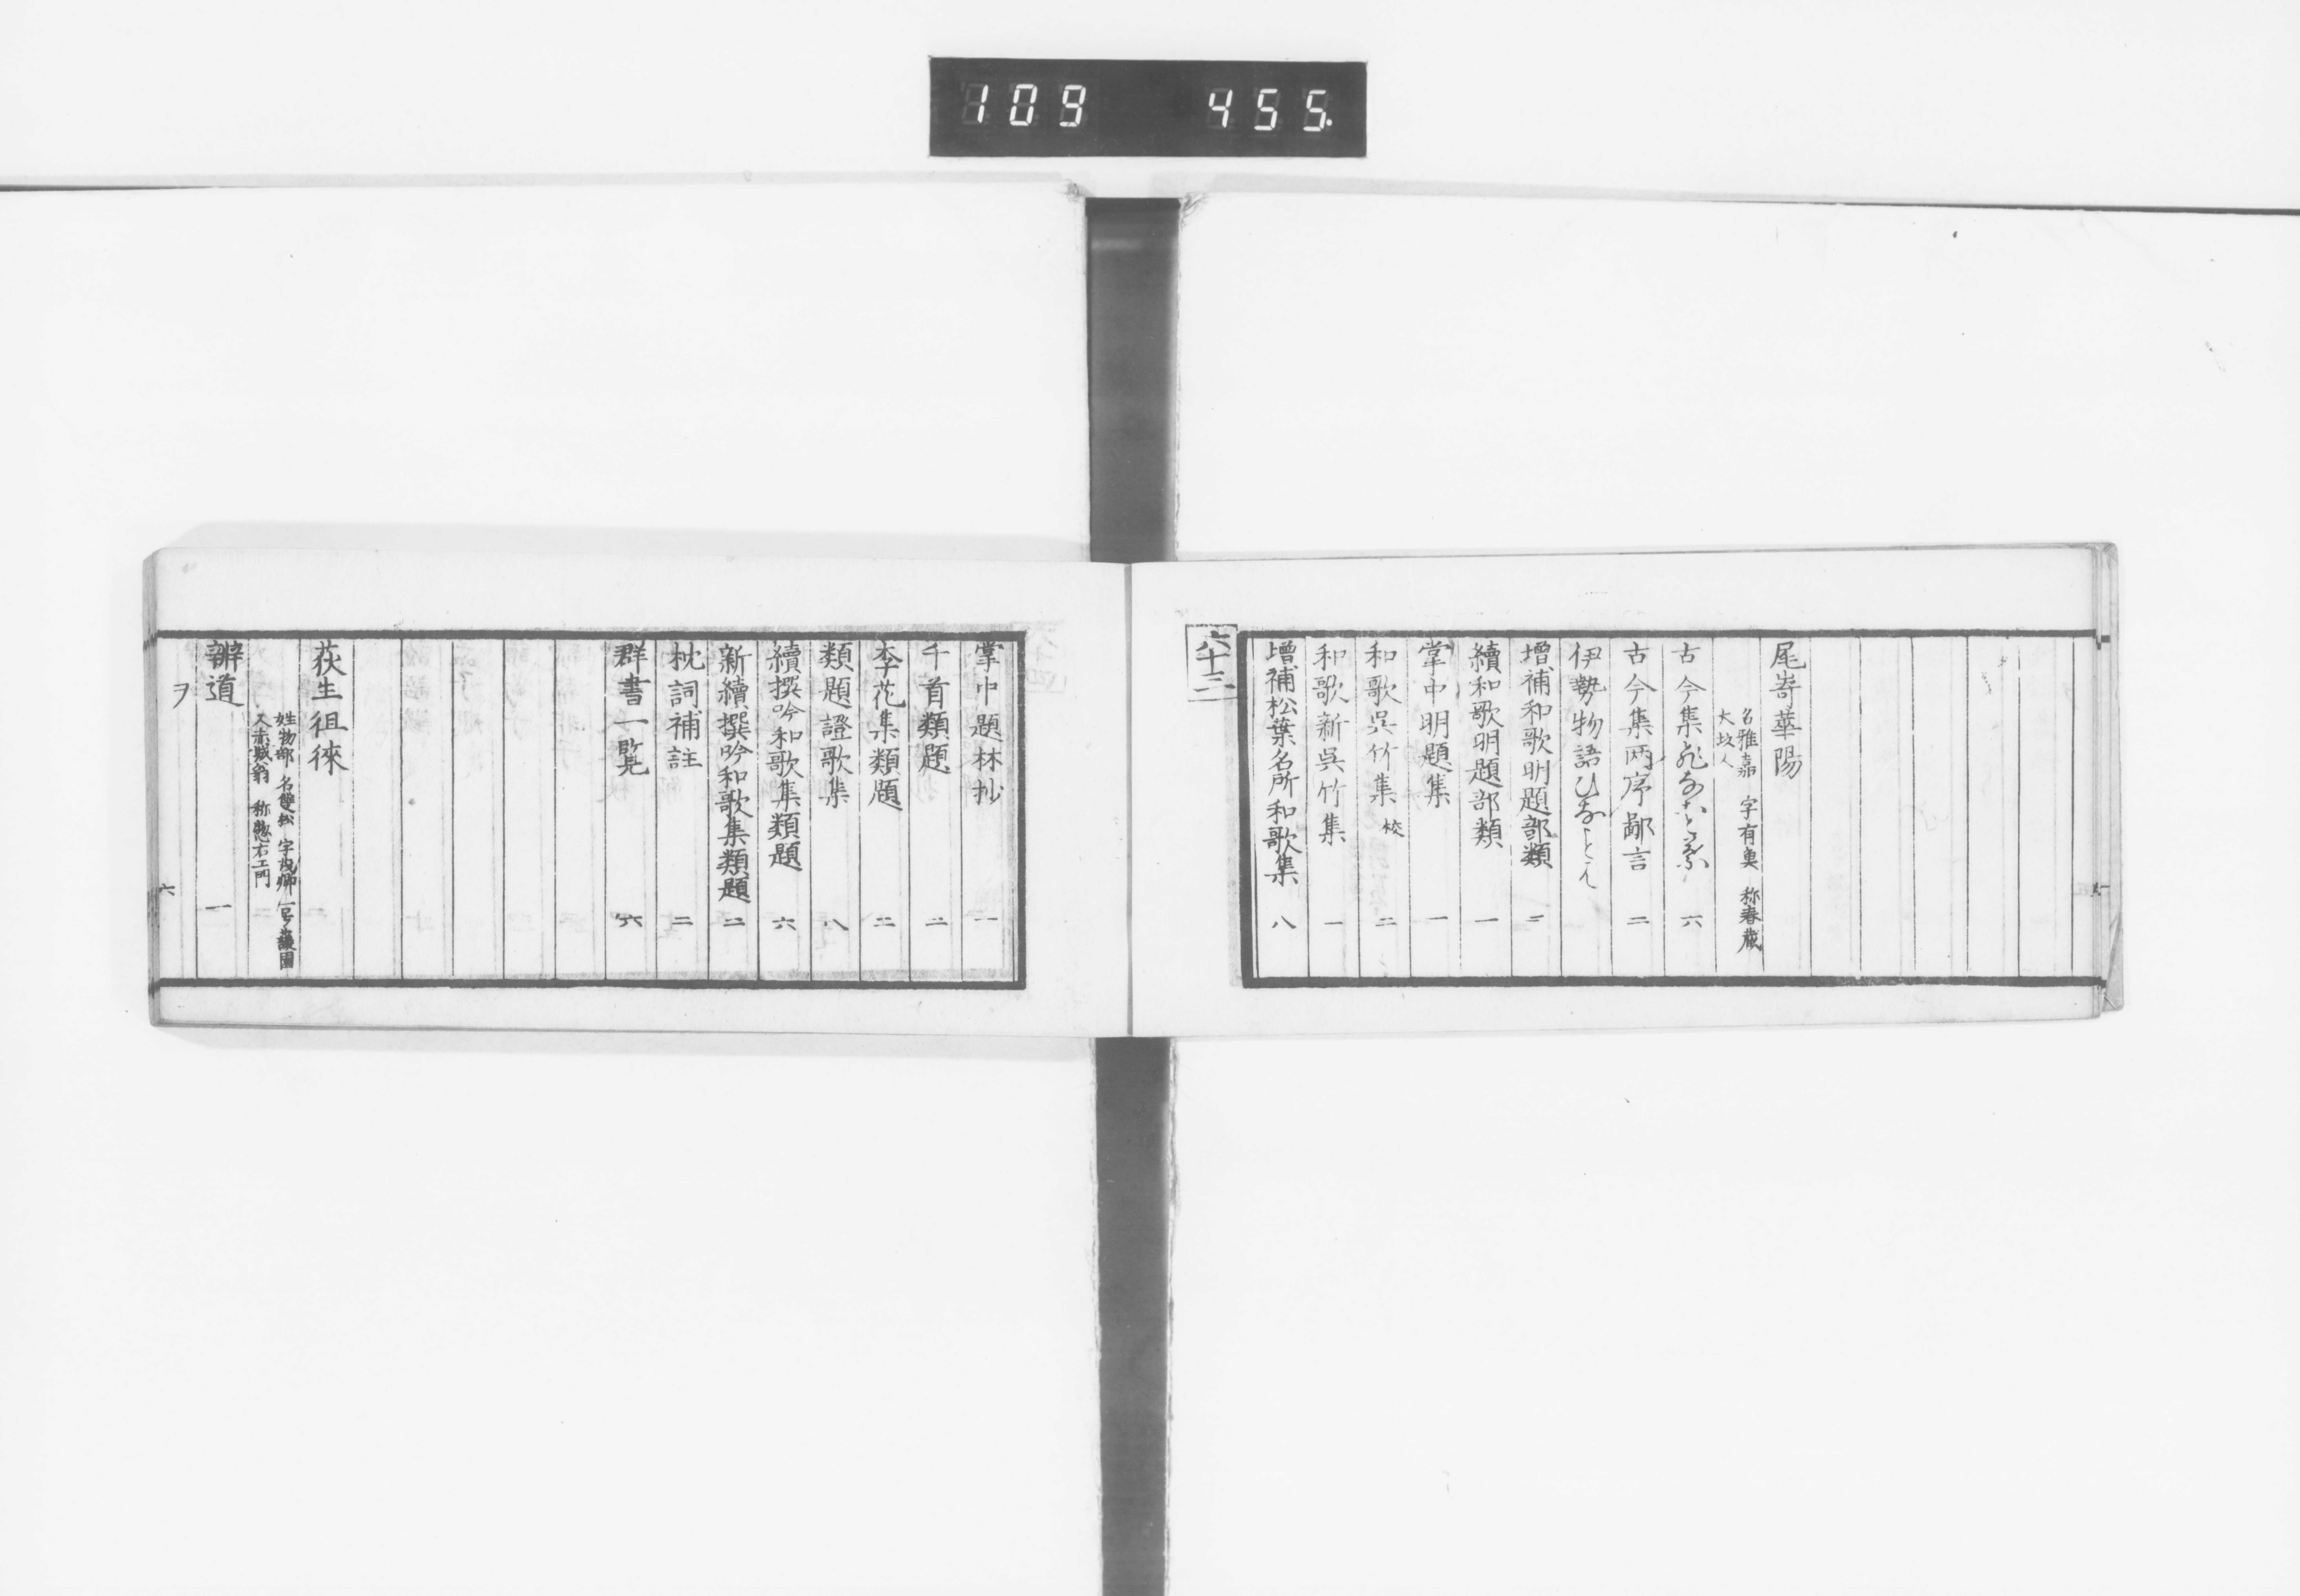 109 455.
尾嵜華陽
名雅嘉 字有魚 称春蔵
大坂人
古今集ひなことば 六
古今集両序鄙言 二
伊勢物語ひなことば
増補和歌明題部類 二
續和歌明題部類 一
掌中明題集 一
和歌呉竹集 校 二
和歌新呉竹集 一
増補松葉名所和歌集 八
六十三
掌中題林抄 一
千首類題 二
李花集類題 二
類題證歌集 八
續撰吟和歌集類題 六
新續撰吟和歌集類題 二
枕詞補註 二
群書一覧 六
荻生徂徠
姓物部 名雙松 字茂卿 号蘐園
又赤城翁 称惣右エ門
辨道 一
ヲ 六